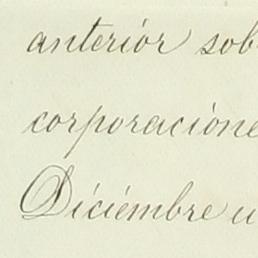 anteriór sob
corporacióne
Diciémbre u